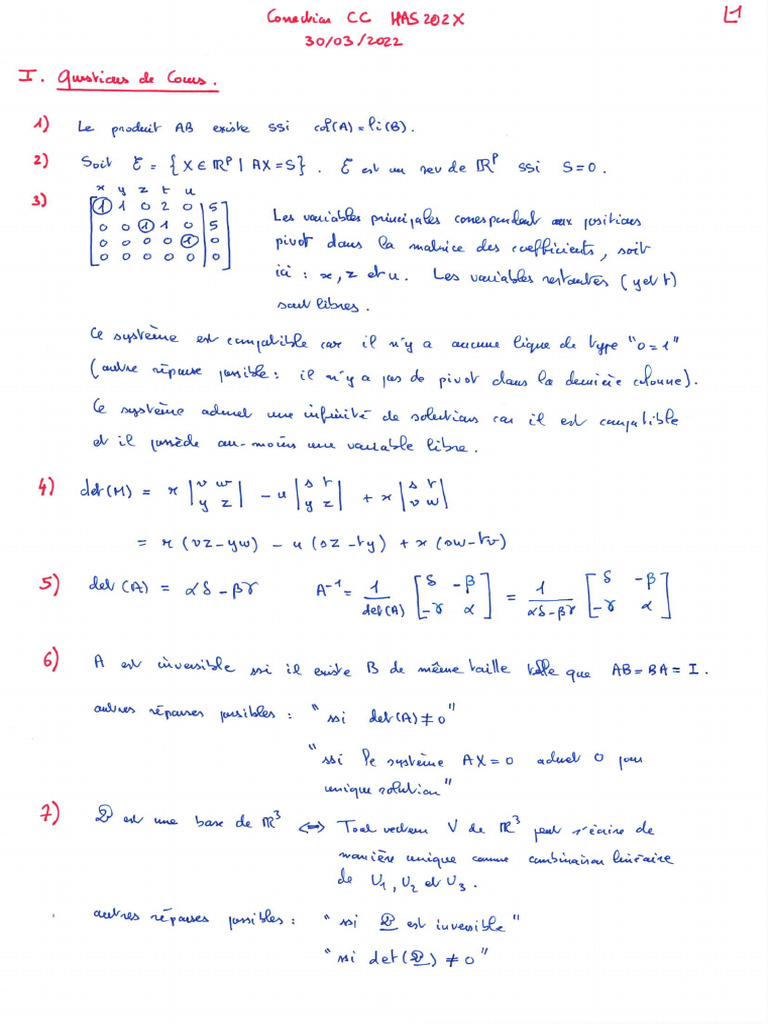 Correction CC HAS202X
1
30/03/2022
I. Questions de Cours.
1) Le produit AB existe ssi col(A)=li(B).
2) Soit ℰ = {X∈ℝᵖ | AX=S}. ℰ est un sev de ℝᵖ ssi S=0.
3) x y z t u
1 1 0 2 0 | 5
0 0 1 1 0 | 5
0 0 0 0 1 | 0
0 0 0 0 0 | 0
Les variables principales correspondent aux positions
pivot dans la matrice des coefficients, soit
ici : x, z et u. Les variables restantes (y et t)
sont libres.
Ce système est compatible car il n'y a aucune ligne de type "0=1"
(autre réponse possible : il n'y a pas de pivot dans la dernière colonne).
Ce système admet une infinité de solutions car il est compatible
et il possède au-moins une variable libre.
4) det(M) = r |v w; y z| - u |s t; y z| + x |s t; v w|
= r (vz-yw) - u (sz-ty) + x (sw-tv)
5) det(A) = αδ-βγ A⁻¹ = 1/det(A) [δ -β; -γ α] = 1/(αδ-βγ) [δ -β; -γ α]
6) A est inversible ssi il existe B de même taille telle que AB=BA=I.
autres réponses possibles : "ssi det(A)≠0"
"ssi le système AX=0 admet 0 pour
unique solution"
7) 𝒟 est une base de ℝ³ ⟺ Tout vecteur V de ℝ³ peut s'écrire de
manière unique comme combinaison linéaire
de U₁, U₂ et U₃.
autres réponses possibles : "ssi 𝒟 est inversible"
"ssi det(𝒟) ≠ 0"